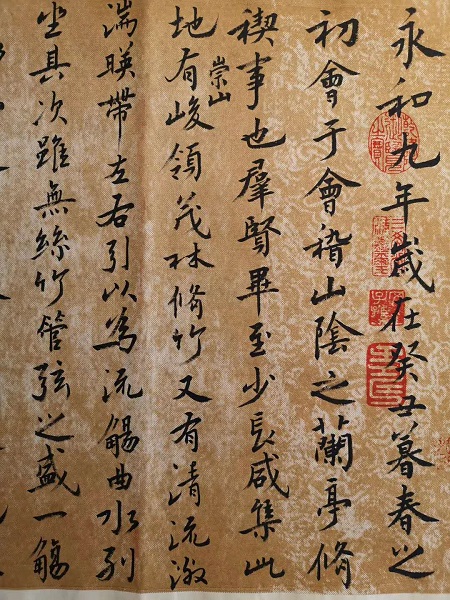 永和九年歲在癸丑暮春之
初會于會稽山陰之蘭亭脩
稧事也羣賢畢至少長咸集此
地有崇山峻領茂林脩竹又有清流激
湍暎帶左右引以為流觴曲水列
坐其次雖無絲竹管弦之盛一觴